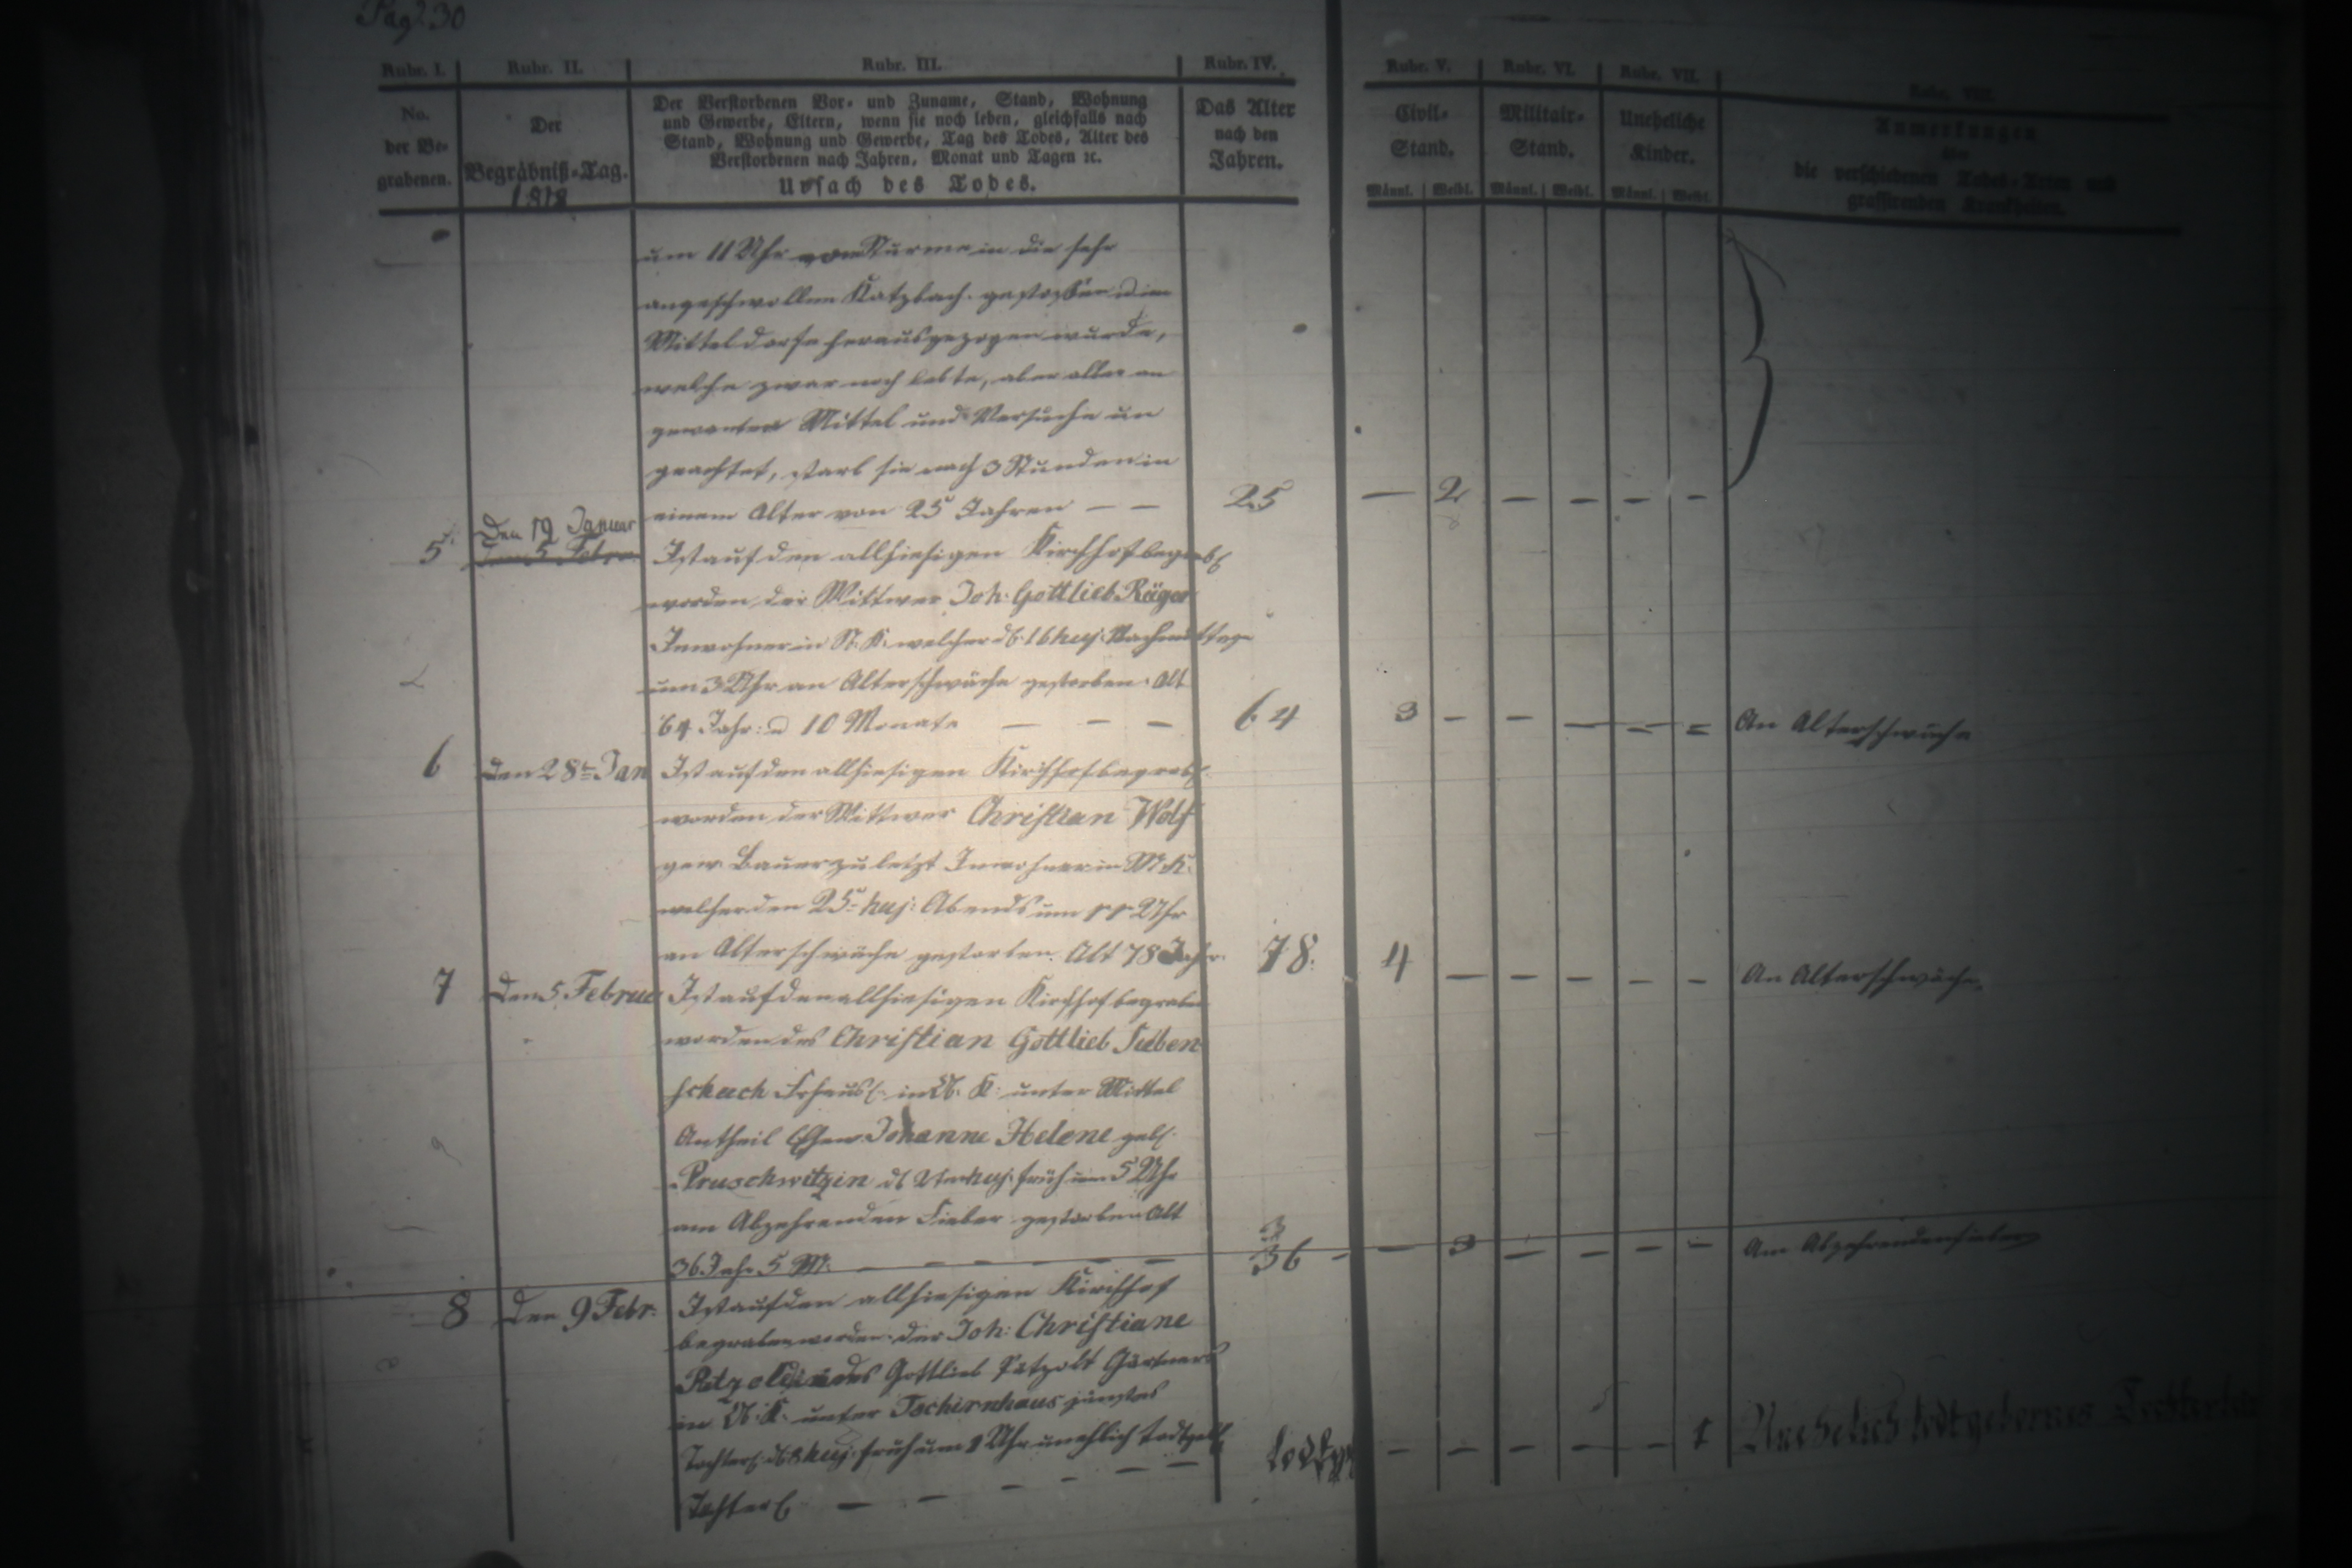 Pag. 230
Rubr. I. Rubr. II. Rubr. III. Rubr. IV. Rubr. V. Rubr. VI. Rubr. VII. Rubr. VIII.
No. der Be- grabenen.
Der Begräbniß-Tag. 1818
Der Verstorbenen Vor- und Zuname, Stand, Wohnung
und Gewerbe, Eltern, wenn sie noch leben, gleichfalls nach
Stand, Wohnung und Gewerbe, Tag des Todes, Alter des
Verstorbenen nach Jahren, Monat und Tagen ꝛc.
Ursach des Todes.
Das Alter nach den Jahren.
Civil- Stand.
Militair- Stand.
Uneheliche Kinder.
Männl. Weibl. Männl. Weibl. Männl. Weibl.
Anmerkungen
über
die verschiedenen Todes-Arten und
grassirenden Krankheiten.
um 11 Uhr vom Sturme in die sehr
angeschwollen Katzbach gestoßen u im
Mitteldorfe herausgezogen wurde,
welche zwar noch lebte, aber aller an
gewanten Mittel und Versuche un
geachtet, starb sie nach 3 Stunden in
einem Alter von 25 Jahren — — 25 — 2 — — — —
5. Den 19 Januar
Den 5 Febru
Ist auf den allhiesigen Kirchhof begrab
worden der Wittwer Joh: Gottlieb Räger
Inwohner in N. K. welcher d 16 huj: Nachmittags
um 3 Uhr an Alterschwäche gestorben. Alt
64 Jahr: u 10 Monate — — — 64 3 — — — — = An Alterschwäche
6 Den 28t Jan Ist auf den allhiesigen Kirchhof begrab
worden der Wittwer Christian Wolf
gew. Bauer zuletzt Inwohner in M. K:
welcher den 25t huj: Abends um 11 Uhr
an Alterschwäche gestorben. Alt 78 Jahr. 78. 4 — — — — — An Alterschwäche
7 Den 5 Februar Ist auf den allhiesigen Kirchhof begraben
worden des Christian Gottlieb Sieben
schuch Frhäusl: in N. K: unter Mittel
Antheil Ehew. Johanne Helene geb.
Pruschwitzin d 2ten huj: früh um 5 Uhr
am Abzehrenden Fieber gestorben Alt
36 Jahr 5 M: — — — — — 36 — — 3 — — — — Am Abzehrendenfieber
8 Den 9 Febr: Ist auf den allhiesigen Kirchhof
begraben worden der Joh: Christiane
Petzoldin des Gottlieb Petzolt Gärtners
in N. K: unter Tschirnhaus jüngstes
Töchterl: d 8 huj: früh um 1 Uhr unehlich todtgeb
Töchterl — — — — — — todtgb — — — — — 1 Unehelich todtgebornes Töchterlein